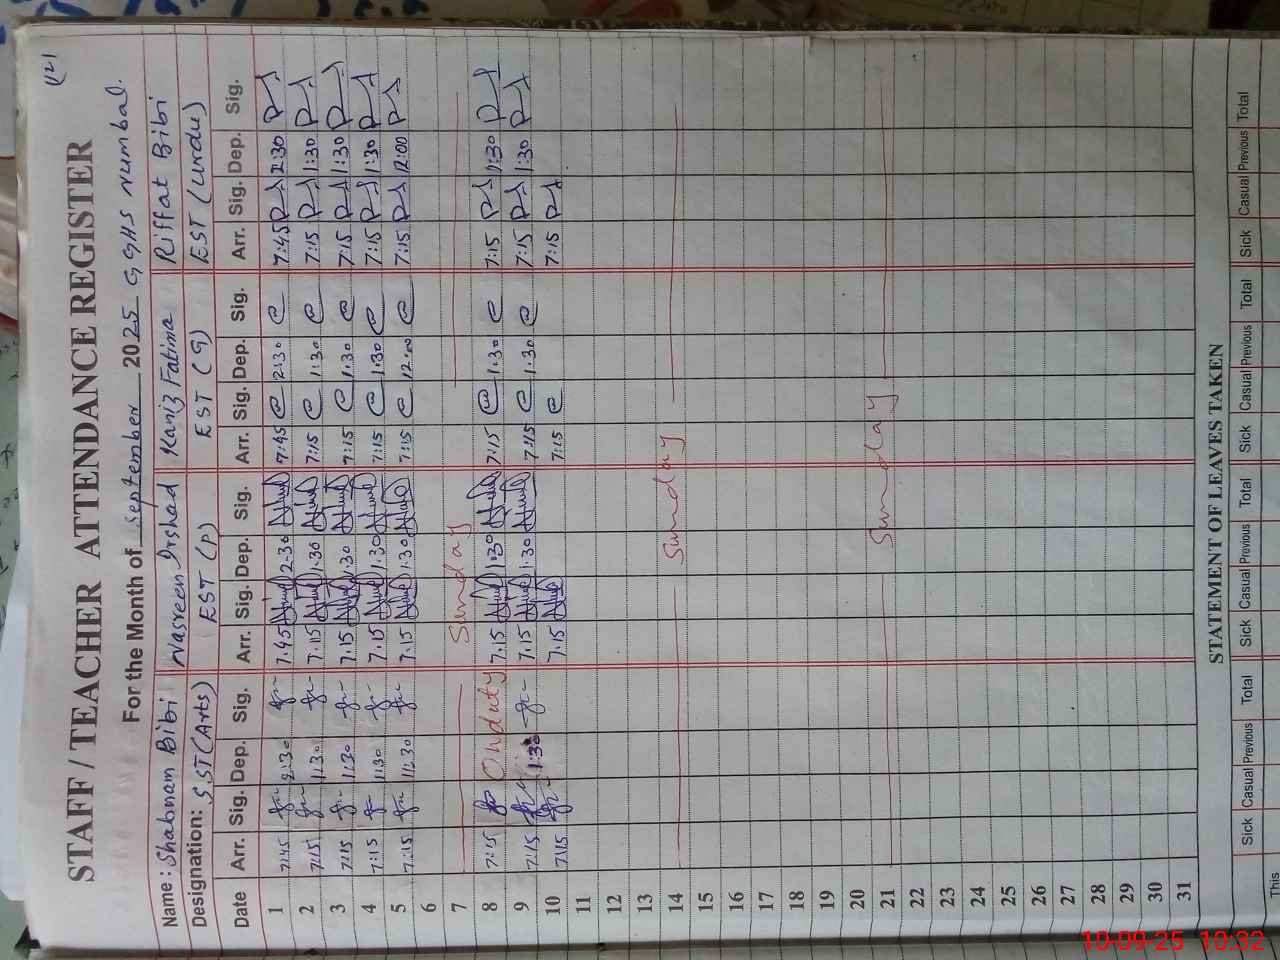 (12)
STAFF / TEACHER ATTENDANCE REGISTER
For the Month of September 2025 GGHS Numbal.
Name: Shabnam Bibi Nasreen Irshad Kaniz Fatima Riffat Bibi
Designation: SST(Arts) EST (P) EST (G) EST (Urdu)
Date Arr. Sig. Dep. Sig. Arr. Sig. Dep. Sig. Arr. Sig. Dep. Sig. Arr. Sig. Dep. Sig.
1 7:45 2:30 7.45 2.30 7:45 2:30 7:45 2:30
2 7:15 1:30 7.15 1.30 7:15 1:30 7:15 1:30
3 7:15 1:30 7.15 1.30 7:15 1:30 7:15 1:30
4 7:15 1:30 7.15 1.30 7:15 1:30 7:15 1:30
5 7:15 7.15 1.30 7:15 12:00 7:15 12:00
6
7 Sunday
8 7:15 Onduty 7.15 1:30 7:15 1:30 7:15 1:30
9 7:15 1:30 7.15 1.30 7:15 1:30 7:15 1:30
10 7:15 7.15 7:15 7:15
11
12
13
14 Sunday
15
16
17
18
19
20
21 Sunday
22
23
24
25
26
27
28
29
30
31
STATEMENT OF LEAVES TAKEN
Sick Casual Previous Total Sick Casual Previous Total Sick Casual Previous Total Sick Casual Previous Total
This
10-09-25 10:32